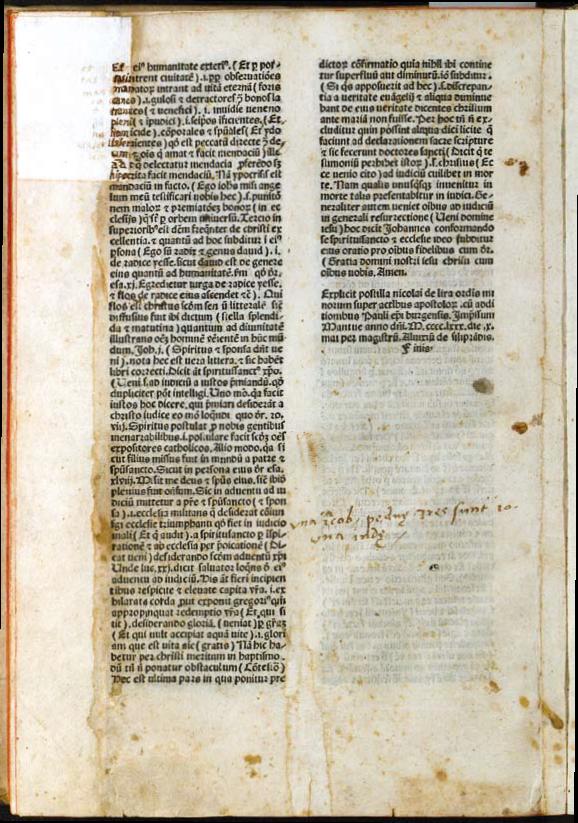 eiꝰ humanitate exteriꝰ. (Et ꝑ por
tas intrent ciuitatē).i.ꝓꝑ obseruatiōes
mandatoꝝ intrant ad uitā eternā (foris
canes).i.gulosi ⁊ detractores
(⁊ uenefici).i. inuidie ueneno
pleni (⁊ ipudici).i.seipos ificientes.(Et
homicide).corporales ⁊ spūales (Et ydo
lis seruientes) qđ est peccatū directe
deum ⁊ ois q̄ amat ⁊ facit mendaciū
q̄ delectatur mendacia
hipocrita facit mendaciū. Nā ypocrisis est
mendaciū in facto.(Ego iohs misi ange
lum meū testificari nobis hec).s.punitō
nem maloꝝ ⁊ premiatōeꝫ bonoꝝ (in ec
clesijs) ꝑ orbem uniuersū. Tercio in
superioribꝰ est dēm freqn̄ter de christi ex
cellentia.⁊ quantū ad hoc subditur i eiꝰ
ꝑsona (Ego sū radix ⁊ genus dauid).i.
de radice yesse.sicut dauid est de genere
eius quantū ad humanitatē.fm qđ dr̄.
esa.xj. Egredietur uirga de radice yesse.
⁊ flos de radice eius ascendet ⁊c̄). Qui
flos est christus scdm sen sū litteralē
diffusius fuit ibi dictum (stella splendi-
da ⁊ matutina) quantum ad diuinitatē
illustrans oēꝫ hominē uēientē in hūc mū
dum. Joh.j.(Spiritus ⁊ sponsa dn̄t ue
ni).nota hoc est uera littera.⁊ sic habēt
libri correcti.Dicit ḡ spiritussanctꝰ xp̄o.
(Ueni).s.ad iudiciū a iustos p̄miandū.qđ
dupliciter pōt intelligi.Uno mō.qa facit
iustos hoc dicere.qui p̄miari desiderāt a
christo iudice eo mō loq̄ndi quo dr̄. ro.
viij.Spiritus postulat ꝓ nobis gemitibus
inenarrabilibus.i.postulare facit scdꝫ oēs
expositores catholicos. Alio modo.qa si
cut filius missus fuit in mūndū a patre ⁊
spūsancto. Sicut in persona eius dr̄ esa.
xlviij. Misit me deus ⁊ spūs eius.sic ibi
plenius fuit oñsum.Sic in aduentu ad iu
diciū mittetur a pr̄e ⁊ spūsancto (⁊ spon
sa).i.ecclesia militans q̄ desiderat cōiun
gi ecclesie triumphanti qđ fiet in iudicio
finali (Et q̄ audit).a spiritusancto ꝑ ispi-
rationē ⁊ ab ecclesia per p̄dicationē (Di
cat ueni) desiderando scdm aduentū xp̄i
Unde luc.xxj.dicit saluator loqn̄s de ei
aduentu ad iudiciū. His aūt fieri incipien
tibus respicite ⁊ eleuate capita ur̄a. i.ex
hilarate corda prout exponit gregoriꝰ qm̄
appropinquat redemptio ur̄a (Et qui si
tit).desiderando gloriā.(ueniat) ꝑ grāꝫ
(Et qui uult accipiat aquā uite).i.glori
am que est uita sic (gratis) Nā hic ha-
betur per christi meritum in baptismo.
dū tn̄ ponatur obstaculum
Hec est ultima pars in qua ponitur pre
dictoꝝ cōfirmatio quia nihil ibi contine
tur superfluū aut diminutū.iō subditur.
(Si qs apposuerit ad hec).s.discrepan-
tia a ueritate euāgelij ⁊ aliqua diminue
bant de eius ueritate dicentes christum
ante mariā non fuisse. Per hoc tn̄ n̄ ex
cluditur quin possint aliqua dici licite q̄
faciunt ad declarationem sacre scripture
⁊ sic fecerunt doctores sancti (Dicit q̄ te
stimoniū perhibet istoꝝ).s.christus (Ec
ce uenio cito) ad iudiciū cuilibet in mor
te. Nam qualis unusq̄sqꝫ inuenitur in
morte talis presentabitur in iudici. Ge-
neraliter autem ueniet oibus ad iudiciū
in generali resurrectione (Ueni domine
iesu) hoc dicit Johannes conformando
se spirituisancto ⁊ ecclesie ideo subditur
eius oratio pro oibus fidelibus cum dr̄.
(Gratia domini nostri iesu christi cum
oibus uobis. Amen.
Explicit postilla nicolai de lira ordis mi
norum super actibus apostoloꝝ.cū addi
tiombus Pauli epi burgensis. Impssum
Mantue anno dn̄i. M. cccc.lxxx.die.x.
mai per magistrū. Aluuxiū de siliprādis.
Finis.
una iacob, pe duꝫ tres sunt io
una iudꝫ